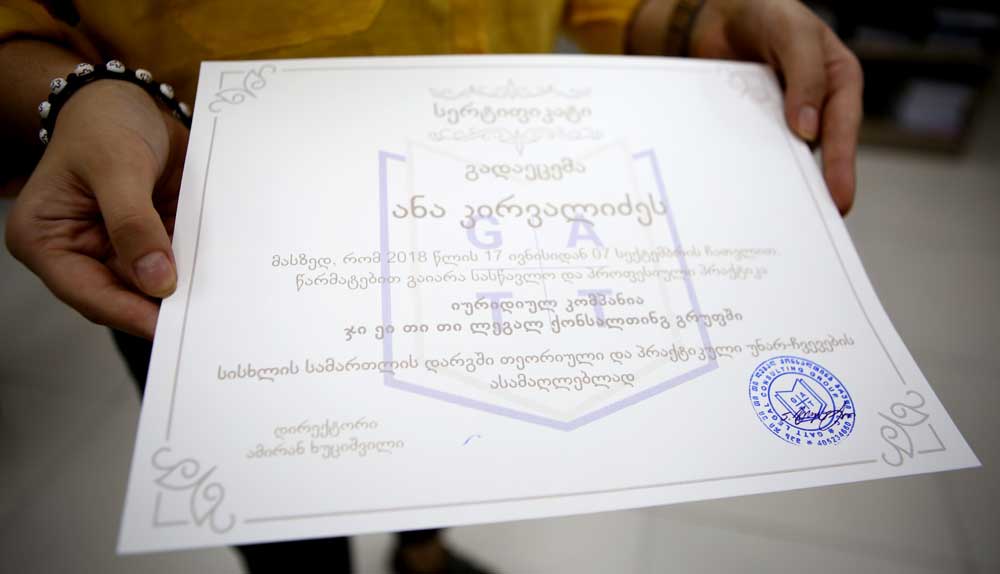 სერტიფიკატი
გადაეცემა
ანა კირვალიძეს
G A
T T
მასზედ, რომ 2018 წლის 17 ივნისიდან 07 სექტემბრის ჩათვლით,
წარმატებით გაიარა სასწავლო და პროფესიული პრაქტიკა
იურიდიულ კომპანია
ჯი ეი თი თი ლეგალ ქონსალთინგ გრუფში
სისხლის სამართლის დარგში თეორიული და პრაქტიკული უნარ-ჩვევების
ასამაღლებლად
დირექტორი
ამირან ხუციშვილი
შპს ჯი ეი თი თი ლეგალ ქონსალთინგ გრუფი
GATT LEGAL CONSULTING GROUP
405234660
G A
T T